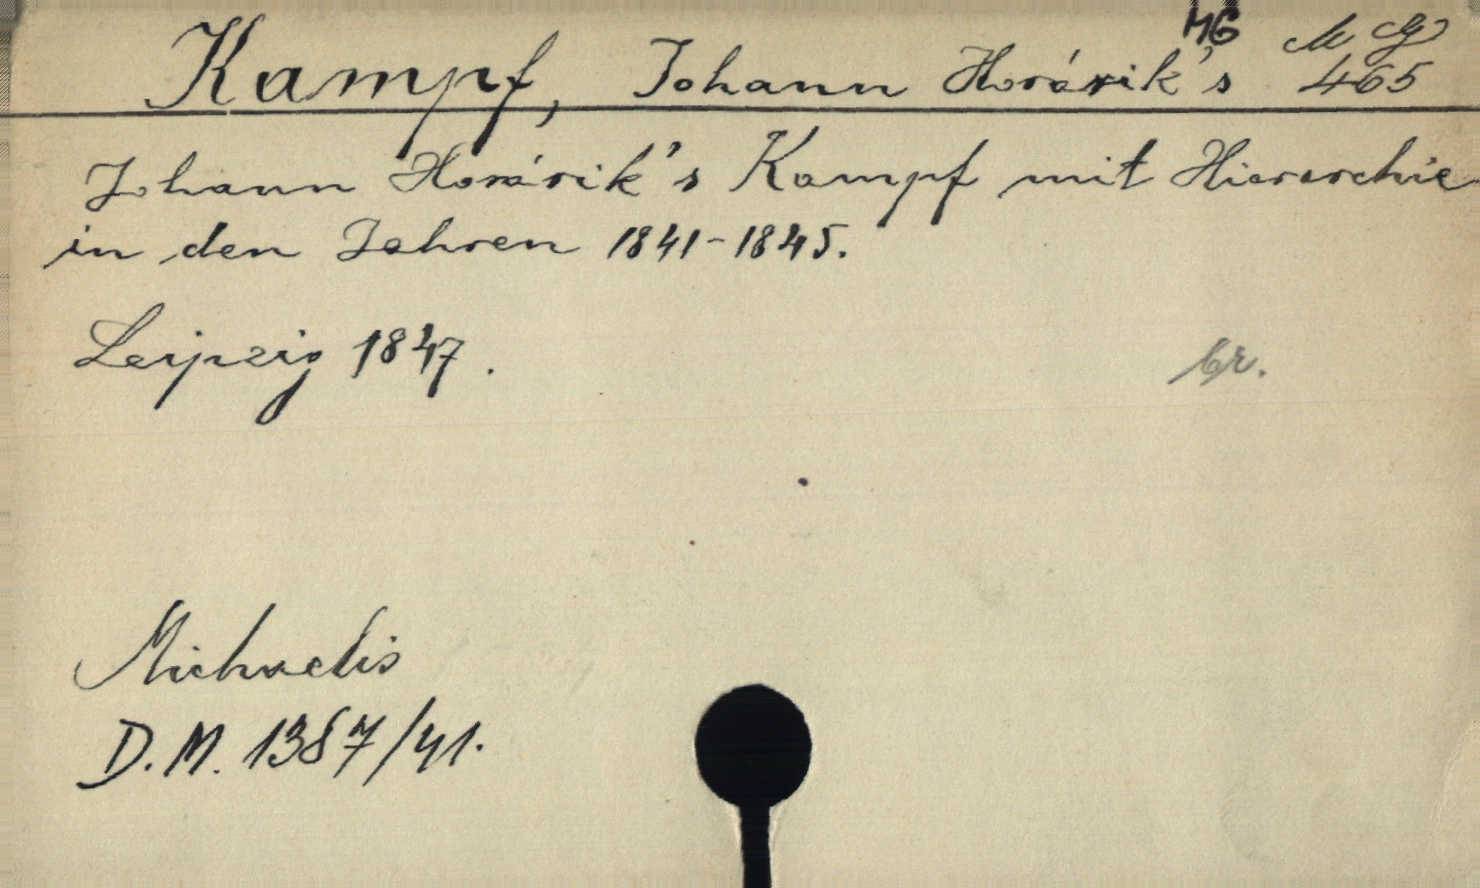 MG
Kampf, Johann Horárik's M G 465
Johann Horárik's Kampf mit Hierarchie
in den Jahren 1841-1845.
Leipzig 1847.
br.
Michaelis
D. M. 1387/41.